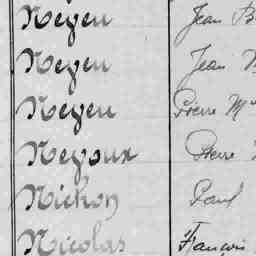 Neyen Jean B
Neyen Jean
Neyen Pierre M
Neyoux Pierre
Nichon Paul
Nicolas François